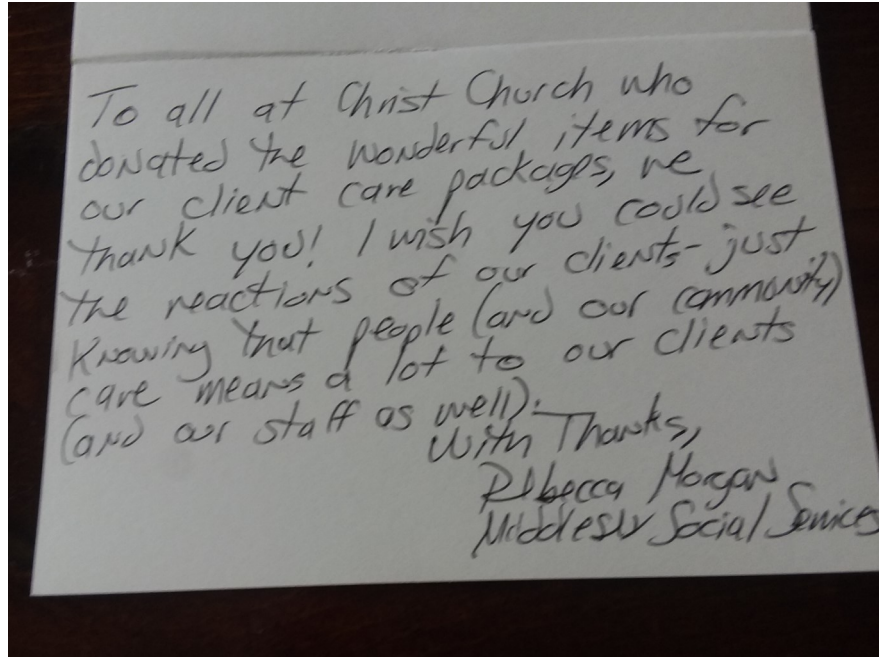 To all at Christ Church who
donated the wonderful items for
our client care packages, we
thank you! I wish you could see
the reactions of our clients - just
Knowing that people (and our community)
care means a lot to our clients
(and our staff as well).
With Thanks,
Rebecca Morgan
Middlesex Social Services